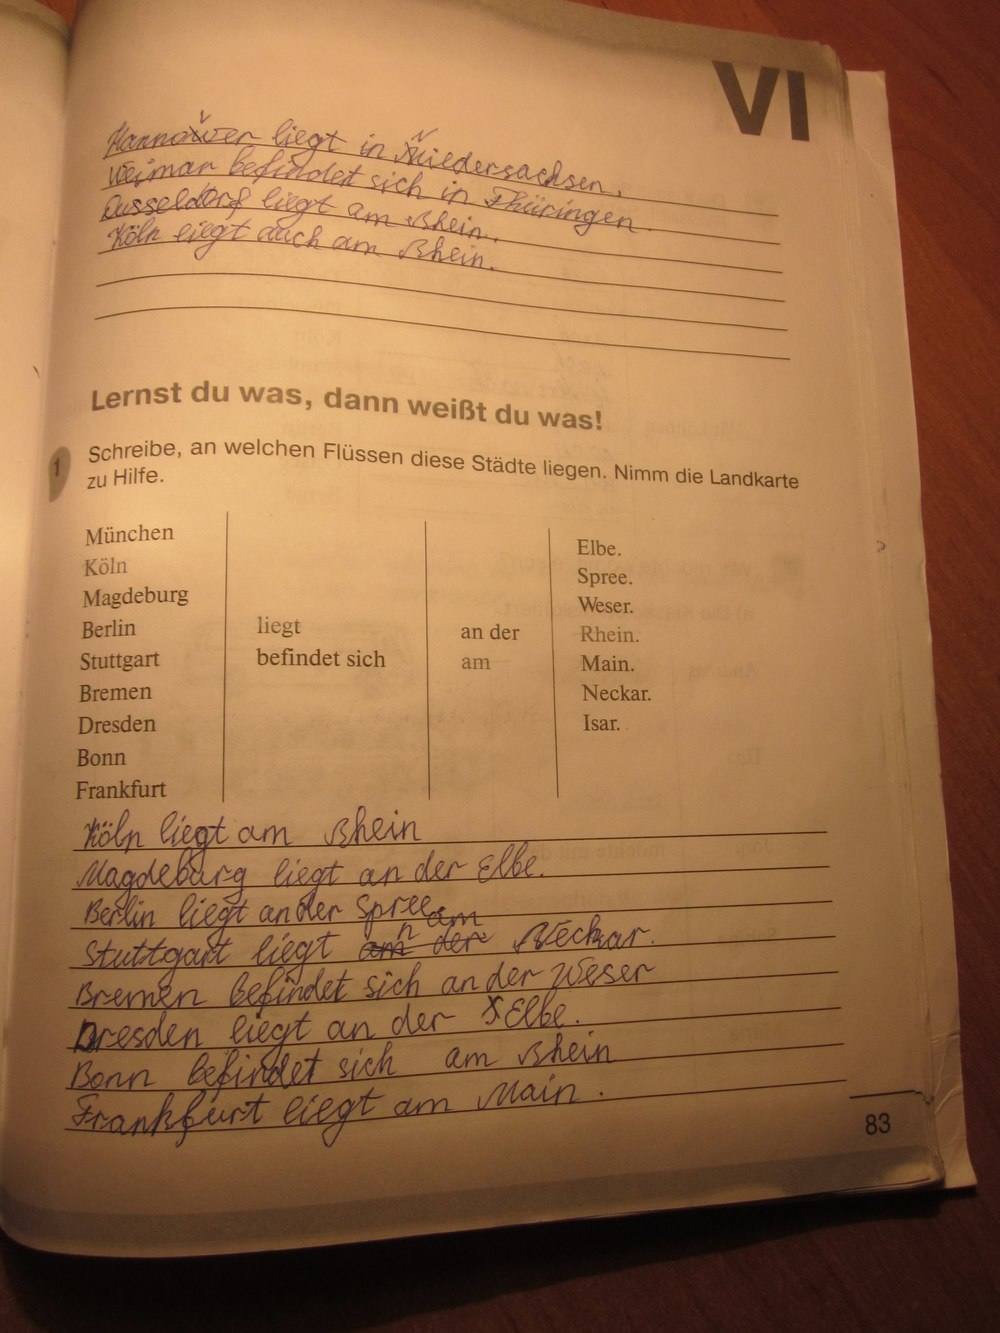 VI
Hannover liegt in Niedersachsen.
Weimar befindet sich in Thüringen.
Dusseldorf liegt am Rhein.
Köln liegt auch am Rhein.
Lernst du was, dann weißt du was!
1
Schreibe, an welchen Flüssen diese Städte liegen. Nimm die Landkarte
zu Hilfe.
München
Köln
Magdeburg
Berlin
Stuttgart
Bremen
Dresden
Bonn
Frankfurt
liegt
befindet sich
an der
am
Elbe.
Spree.
Weser.
Rhein.
Main.
Neckar.
Isar.
Köln liegt am Rhein
Magdeburg liegt an der Elbe.
Berlin liegt an der Spree.
Stuttgart liegt am Neckar.
Bremen befindet sich an der Weser
Dresden liegt an der Elbe.
Bonn befindet sich am Rhein
Frankfurt liegt am Main.
83